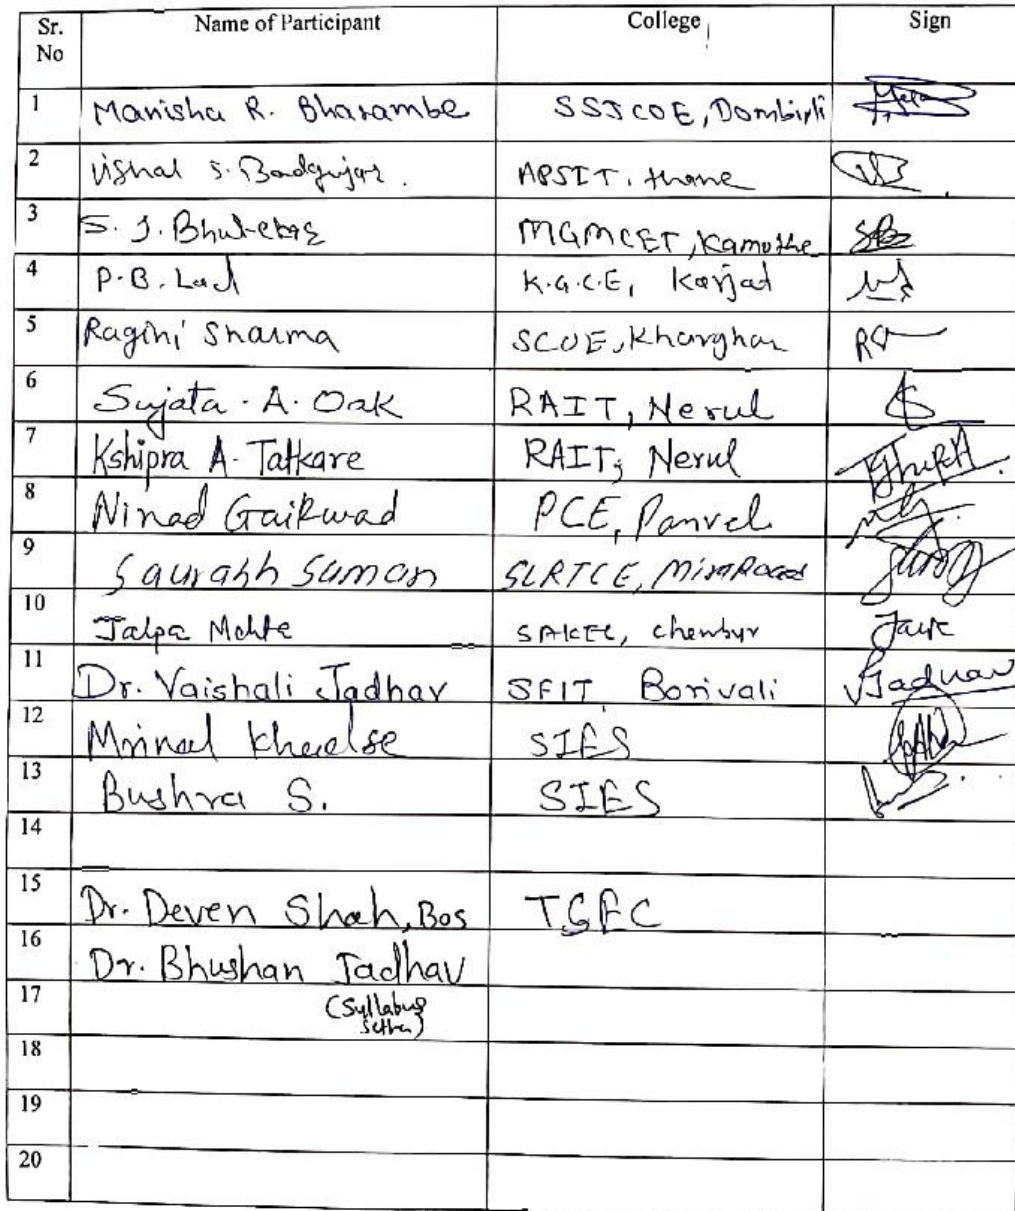 Sr. No Name of Participant College Sign
1 Manisha R. Bharambe SSJCOE, Dombivli
2 Vishal S. Badgujar. APSIT, thane
3 S. J. MGMCET, Kamothe SB
4 P.B. Lad K.G.C.E, Karjat
5 Ragini Sharma SCOE, Kharghar
6 Sujata. A. Oak RAIT, Nerul
7 Kshipra A. Tatkare RAIT, Nerul
8 Ninad Gaikwad PCE, Panvel
9 Saurabh Suman SLRTCE, MiraRoad
10 Jalpa Mehta SAKEC, chembur
11 Dr. Vaishali Jadhav SFIT Borivali VJadhav
12 Mrinal SIES
13 Bushra S. SIES
14
15 Dr. Deven Shah, Bos TCEC
16 Dr. Bhushan Jadhav
17 (Syllabus setter)
18
19
20